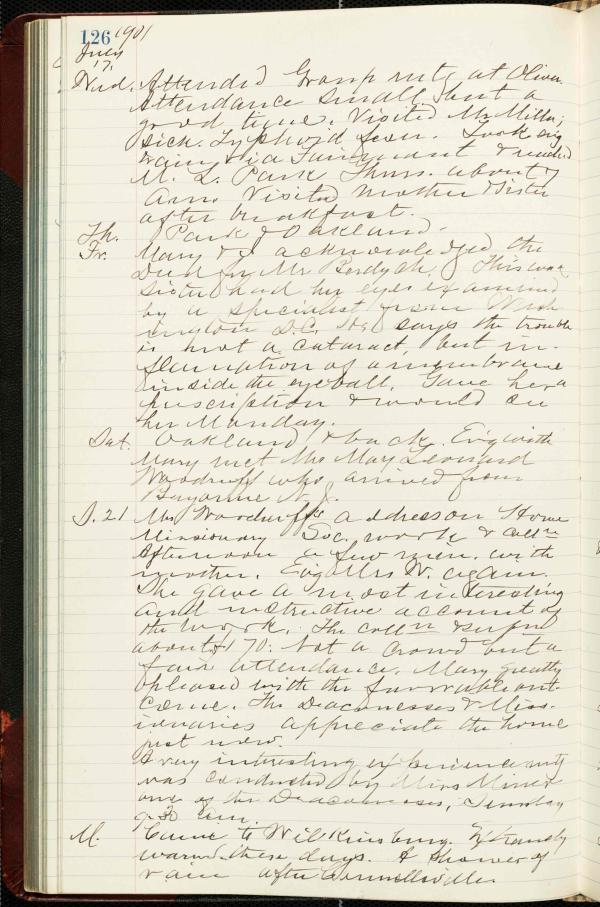 126 1901
July
17.
Wed. Attended Group mtg at Oliver
Attendance small but a
good time. Visited Mr Miller,
sick. Typhoid fever. Took
train via Fairmount & reached
M. L. Park Thurs. about 7
A.m. Visited Mother & Sister
after breakfast.
Th. Park & Oakland.
Fr. Mary & I acknowledged the
Deed to Mr This
Sister had her eyes examined
by a specialist from Wash
ington D.C. He says the trouble
is not a cataract, but in-
flamation of a membrane
inside the eyeball. Gave her a
prescription & would see
her Monday.
Sat. Oakland & back. Evg with
Mary met Mrs May Leonard
Woodruff who arrived from
Bayonne N.J.
S. 21 Mrs Woodruff's address on Home
Missionary Soc. work & colln
Afternoon a few min. with
mother. Evg Mrs W. again.
She gave a most interesting
and instructive account of
the work. The colln &
about $170. Not a crowd but a
fair attendance. Mary greatly
pleased with the favorable out-
come. The Deaconesses & Miss-
ionaries appreciate the home
just now.
A very interesting experience mtg
was conducted by Miss Miner
one of the Deaconesses, Sunday
9-30 a.m.
M. Came to Wilkinsburg. Extremely
warm these days. A shower of
rain after Connellsville